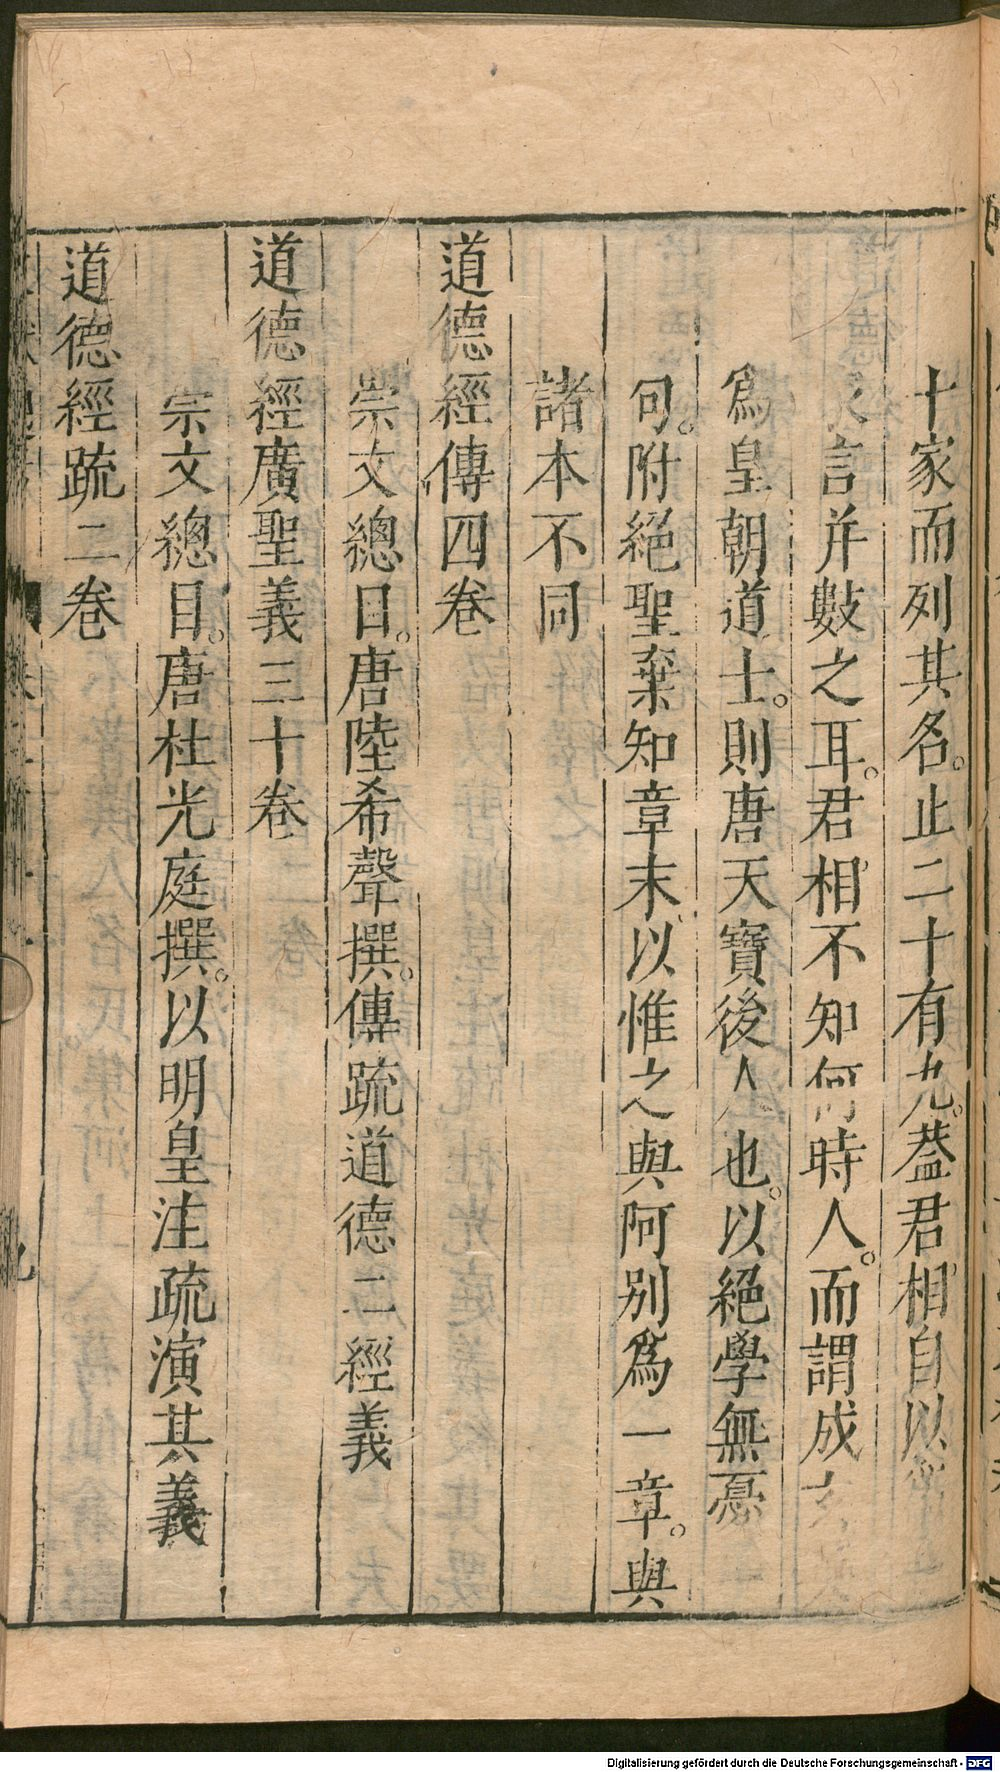 十家而列其名。止二十有九。葢君相自以
言并數之耳。君相不知何時人。而謂成
爲皇朝道士。則唐天寶後人也。以絕學無憂
句。附絕聖棄知章末。以惟之與阿別爲一章。與
諸本不同
道德經傳四卷
崇文總目。唐陸希聲撰。傳疏道德二經義
道德經廣聖義三十卷
崇文總目。唐杜光庭撰。以明皇注疏演其義
道德經疏二卷
Digitalisierung gefördert durch die Deutsche Forschungsgemeinschaft - DFG